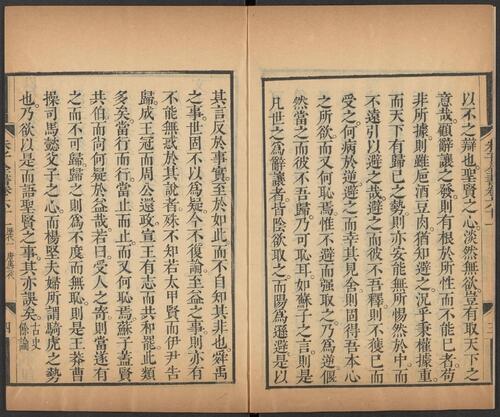 以不之辯也聖賢之心淡然無欲豈有取天下之
意哉顧辭讓之發則有根於所性而不能已者苟
非所據則雖卮酒豆肉猶知避之況乎秉權據重
而天下有歸已之勢則亦安能無所惕然於中而
不遠引以避之哉避之而彼不吾釋則不獲已而
受之何病於逆避之而幸其見舍則固得吾本心
之所欲而又何恥焉惟不避而强取之乃爲逆偃
然當之而彼不吾歸乃可恥耳如蘇子之言則是
凡世之爲辭讓者皆陰欲取之而陽爲遜避是以
其言反於事實至於如此而不自知其非也舜禹
之事世固不以爲疑今不復論至益之事則亦有
不能無惑於其說者殊不知若太甲賢而伊尹告
歸成王冠而周公還政宣王有志而共和罷此類
多矣當行而行當止而止而又何恥焉蘇子蓋賢
共伯而尚何疑於益哉若曰受人之寄則當遂有
之而不可歸歸之則爲不度而無恥則是王莽曹
操司馬懿父子之心而楊堅夫婦所謂騎虎之勢
也乃欲以是而語聖賢之事其亦誤矣古史餘論
四